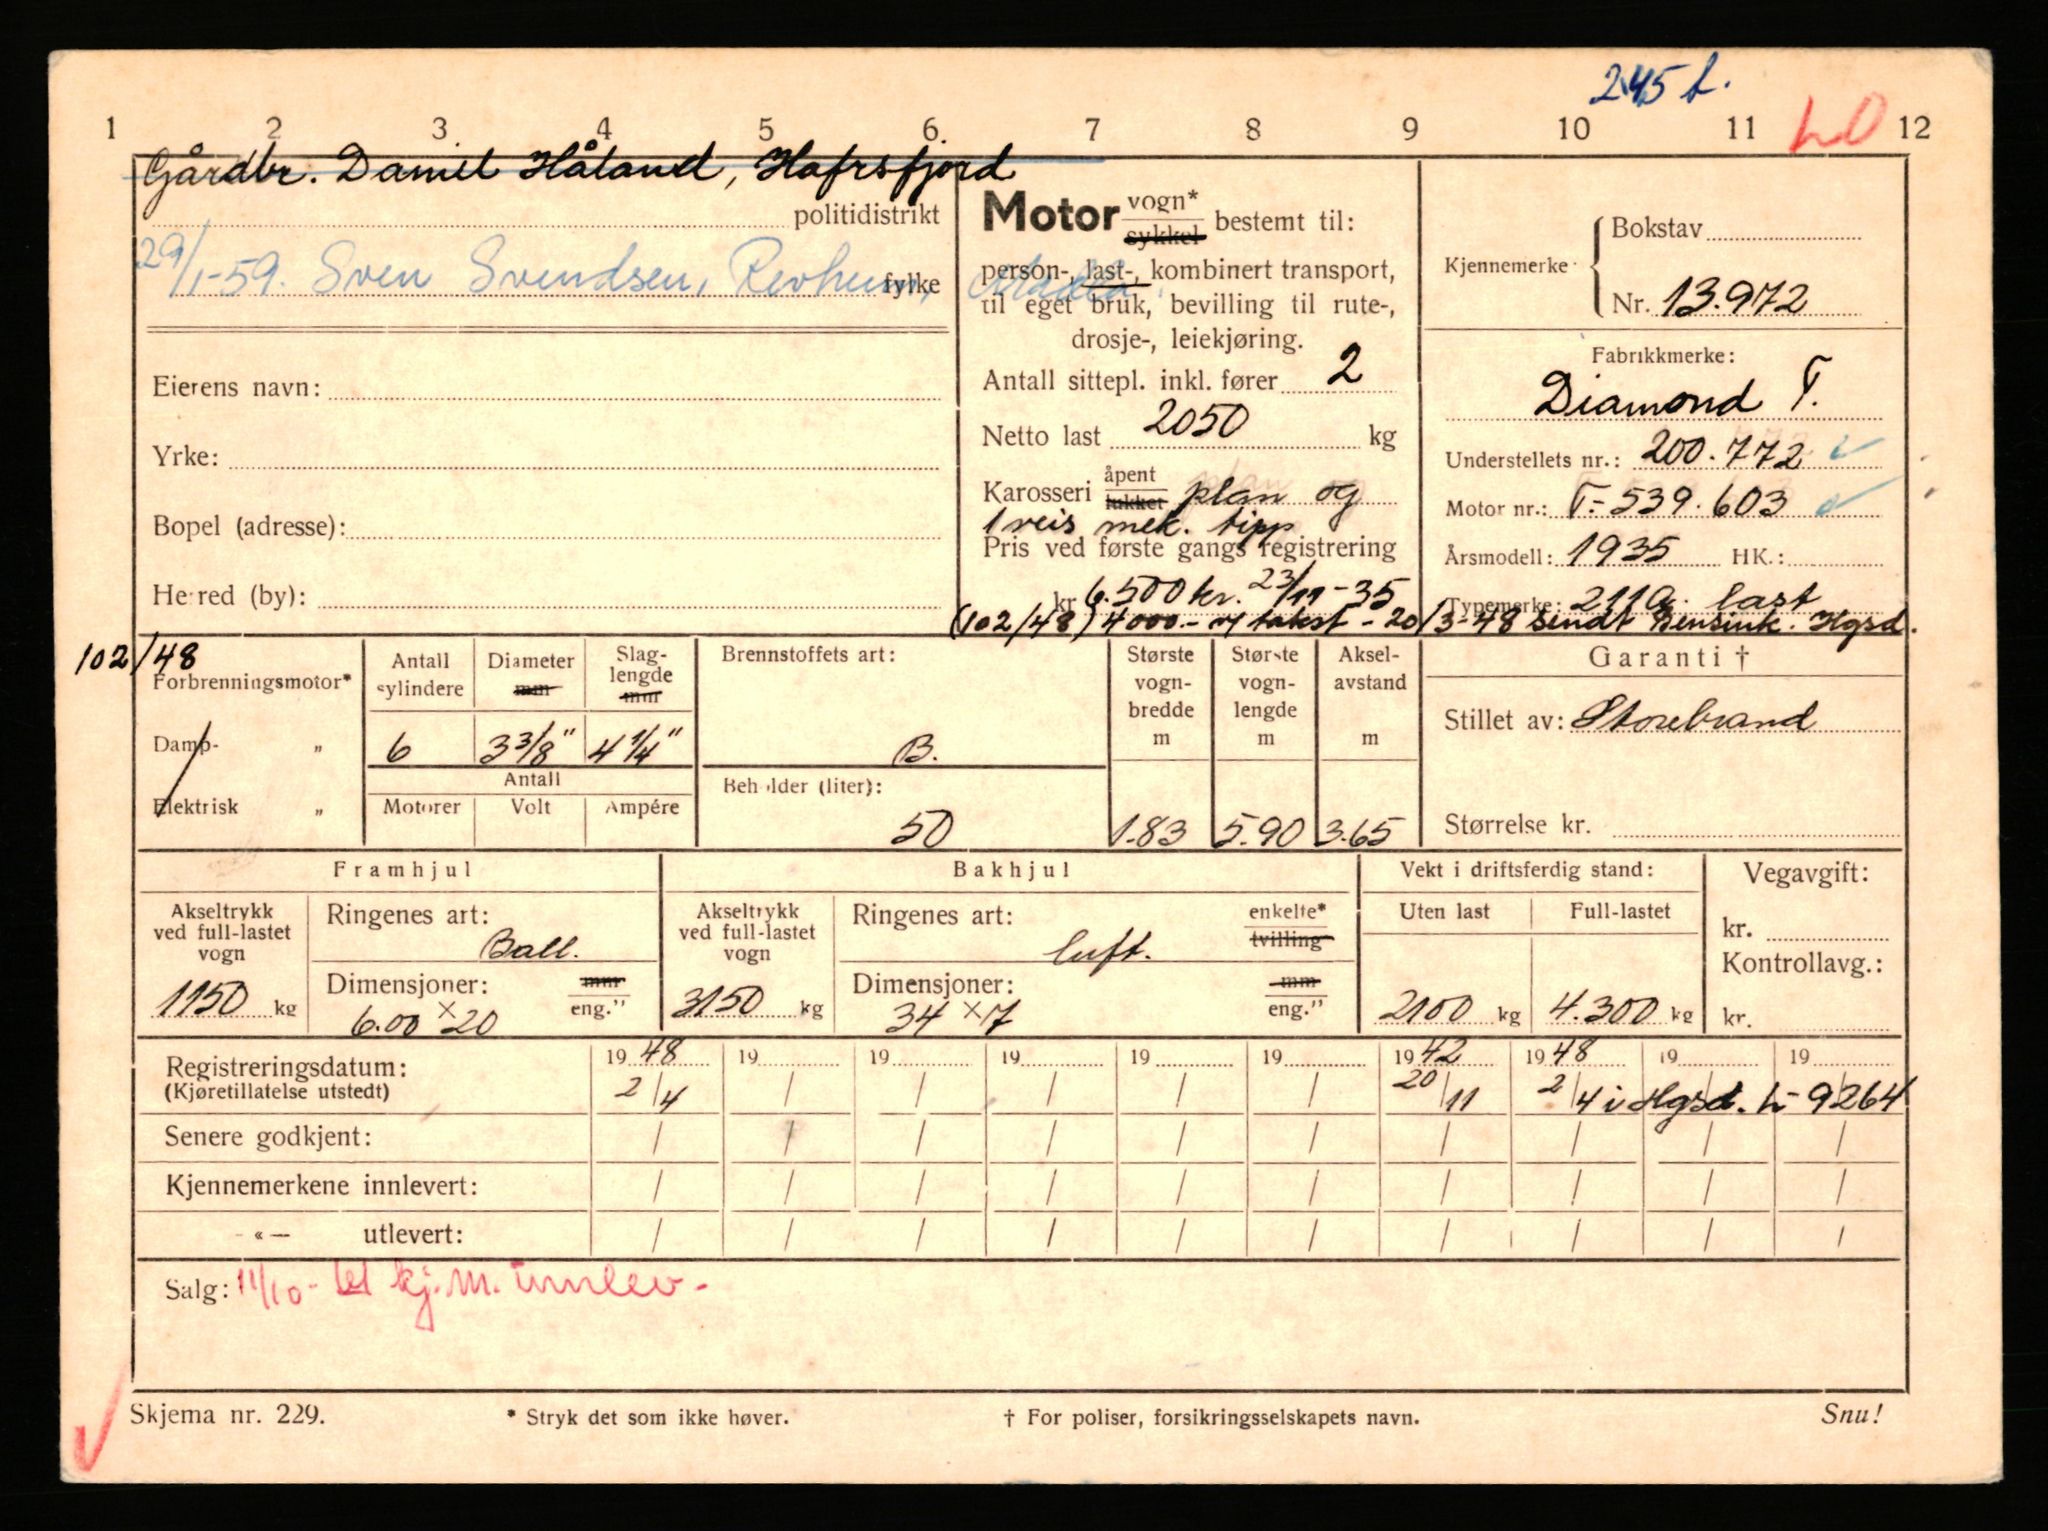 245 t.
1 2 3 4 5 6. 7 8 9 10 11 12
LO
Gårdbr. Daniel Håland, Hafrsfjord
politidistrikt
29/1-59. Sven Svendsen, Revheim, Madla.
fylke
Eierens navn:
Yrke:
Bopel (adresse):
Herred (by):
Motor vogn* sykkel bestemt til:
person-, last-, kombinert transport,
til eget bruk, bevilling til rute-,
drosje-, leiekjøring.
Antall sittepl. inkl. fører 2
Netto last 2050 kg
Karosseri åpent lukket plan og
1 veis mek. tipp
Pris ved første gangs registrering
kr 6.500 kr. 23/11-35
Kjennemerke
Bokstav
Nr. 13.972
Fabrikkmerke:
Diamond T.
Understellets nr.: 200.772
Motor nr.: T-539.603
Årsmodell: 1935 HK.:
Typemerke: 211a. last
(102/48) 4000.- takst - 20/3-48 sendt Bensink. Hgsd.
102/48
Forbrenningsmotor*
Damp- „
Elektrisk „
Antall cylindere
6
Diameter mm
3 3/8"
Slag-lengde mm
4 1/4"
Antall
Motorer Volt Ampére
Brennstoffets art:
B.
Beholder (liter):
50
Største vogn-bredde m
1.83
Største vogn-lengde m
5.90
Aksel-avstand m
3.65
Garanti †
Stillet av: Storebrand
Størrelse kr.
Framhjul
Akseltrykk ved full-lastet vogn
1150 kg
Ringenes art:
Ball.
Dimensjoner: mm eng."
6.00 x 20
Bakhjul
Akseltrykk ved full-lastet vogn
3150 kg
Ringenes art: enkelte* tvilling
luft.
Dimensjoner: mm eng."
34 x 7
Vekt i driftsferdig stand:
Uten last Full-lastet
2100 kg 4.300 kg
Vegavgift:
kr.
Kontrollavg.:
kr.
Registreringsdatum: 19 48 19 19 19 19 19 19 42 19 48 19 19
(Kjøretillatelse utstedt) 2/4 / / / / / 20/11 2/4 i Hgsd. L-9264
Senere godkjent: / / / / / / / / / /
Kjennemerkene innlevert: / / / / / / / / / /
- «— utlevert: / / / / / / / / / /
Salg: 11/10- kj.m. innlev-
Skjema nr. 229.
* Stryk det som ikke høver.
† For poliser, forsikringsselskapets navn.
Snu!